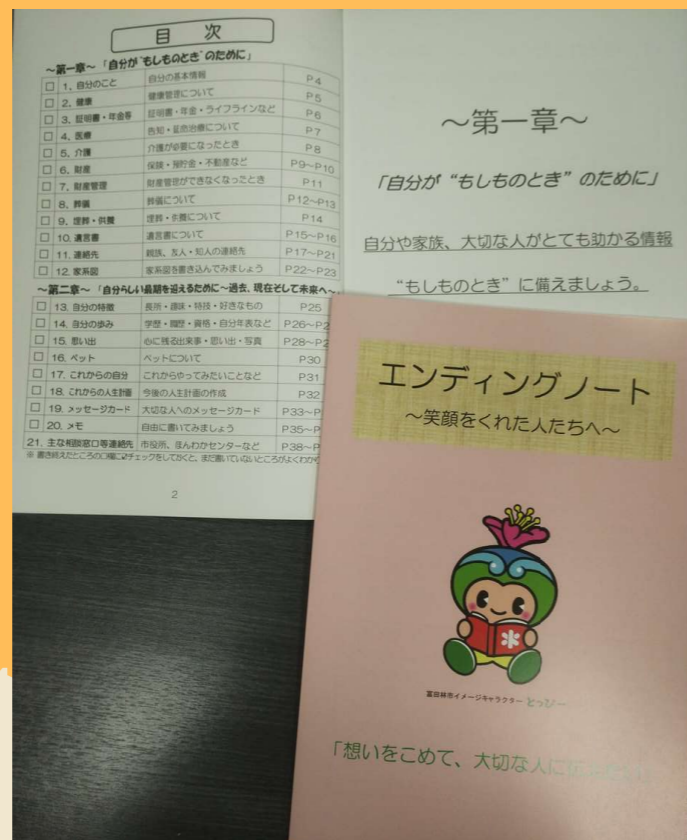 目 次
～第一章～「自分が“もしものとき”のために」
□ 1，自分のこと 自分の基本情報 P4
□ 2，健康 健康管理について P5
□ 3，証明書・年金等 証明書・年金・ライフラインなど P6
□ 4，医療 告知・延命治療について P7
□ 5，介護 介護が必要になったとき P8
□ 6，財産 保険・預貯金・不動産など P9～P10
□ 7，財産管理 財産管理ができなくなったとき P11
□ 8，葬儀 葬儀について P12～P13
□ 9，埋葬・供養 埋葬・供養について P14
□ 10，遺言書 遺言書について P15～P16
□ 11，連絡先 親族、友人・知人の連絡先 P17～P21
□ 12，家系図 家系図を書き込んでみましょう P22～P23
～第二章～「自分らしい最期を迎えるために～過去、現在そして未来へ～
□ 13，自分の特徴 長所・趣味・特技・好きなもの P25
□ 14，自分の歩み 学歴・職歴・資格・自分年表など P26～P2
□ 15，思い出 心に残る出来事・思い出・写真 P28～P2
□ 16，ペット ペットについて P30
□ 17，これからの自分 これからやってみたいことなど P31
□ 18，これからの人生計画 今後の人生計画の作成 P32
□ 19，メッセージカード 大切な人へのメッセージカード P33～P
□ 20，メモ 自由に書いてみましょう P35～P
21，主な相談窓口等連絡先 市役所、ほんわかセンターなど P38～P
※ 書き終えたところの□欄に☑チェックをしておくと、まだ書いていないところがよくわか
2
～第一章～
「自分が“もしものとき”のために」
自分や家族、大切な人がとても助かる情報
“もしものとき”に備えましょう。
エンディングノート
～笑顔をくれた人たちへ～
富田林市イメージキャラクター とっぴー
「想いをこめて、大切な人に